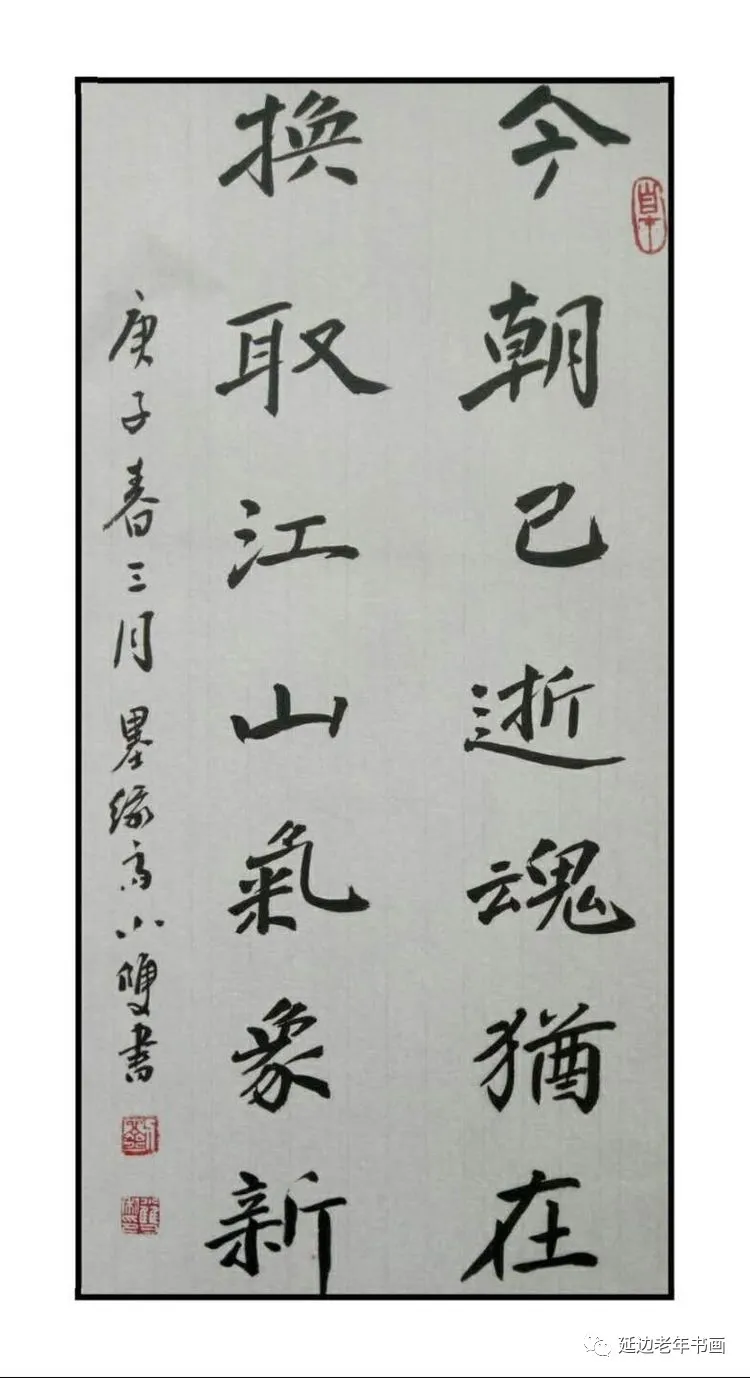 今朝已逝魂猶在
換取江山氣象新
庚子春三月墨缘高小雙書
延边老年书画